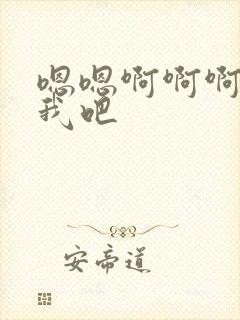 嗯嗯啊啊啊
我吧
安帝道